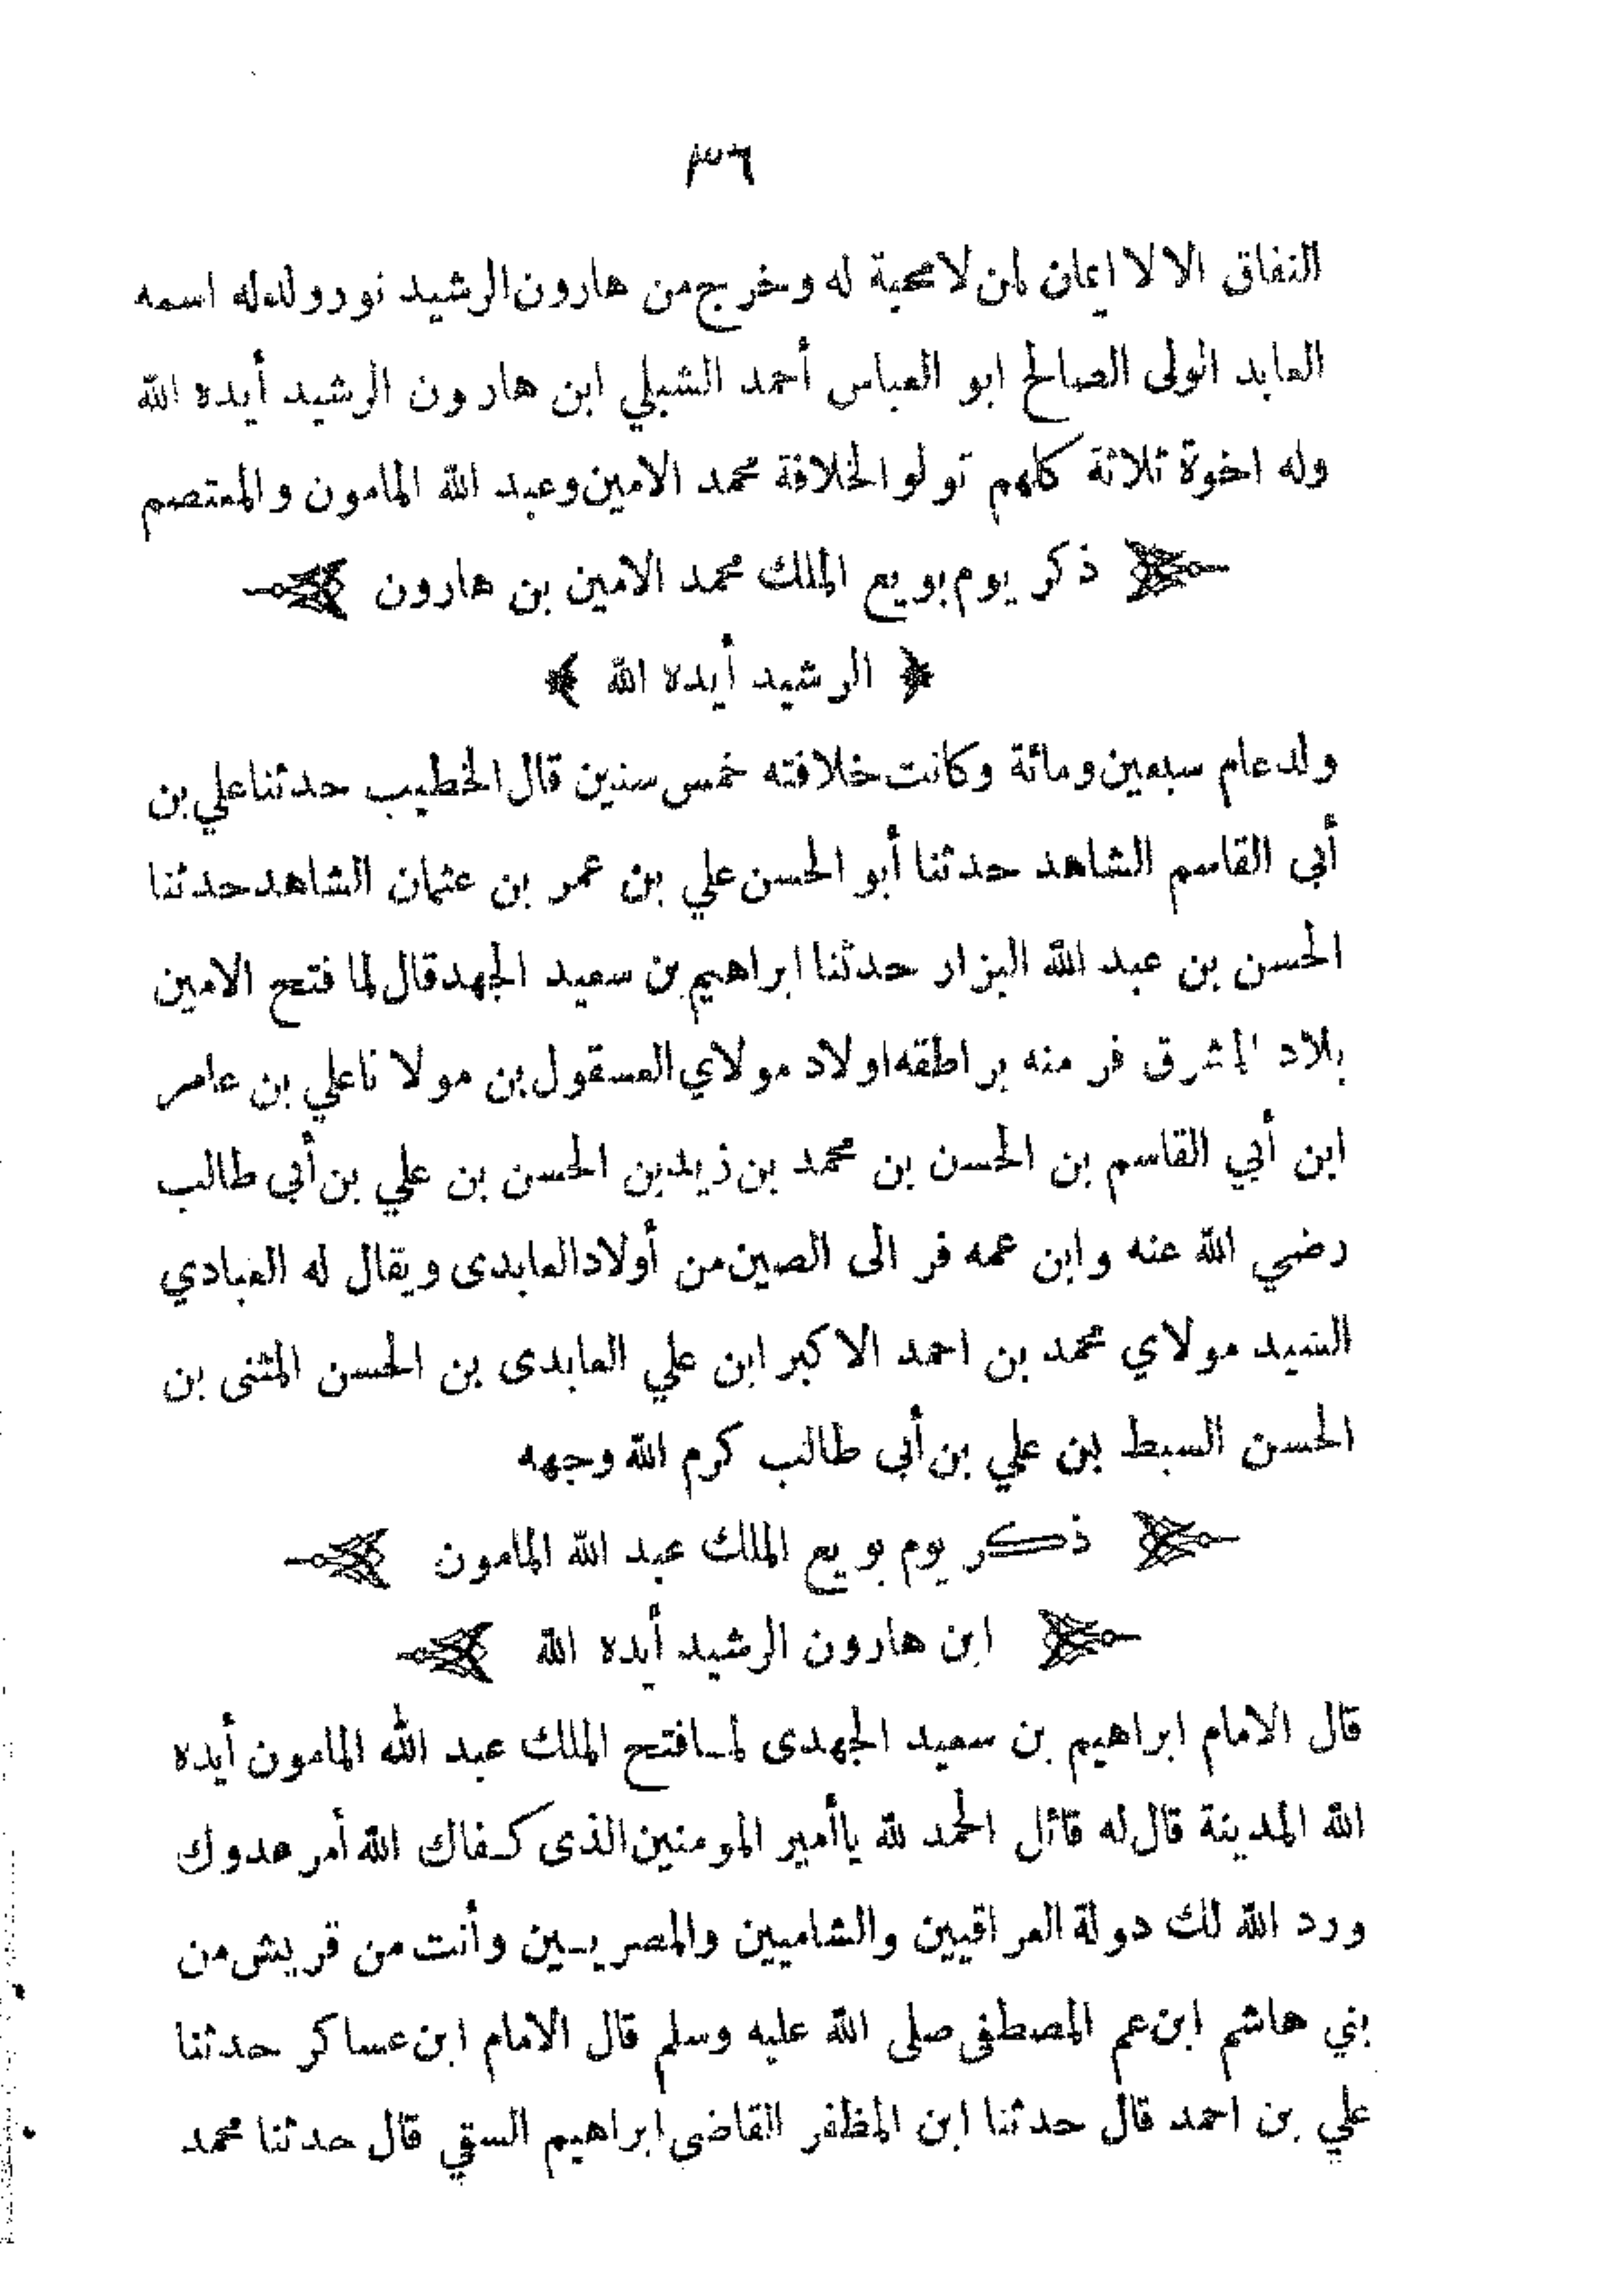 ٣٦
النفاق الا لا ايمان لمن لا محبة له وخرج من هارون الرشيد نور ولد له اسمه
العابد الولى الصالح ابو العباس أحمد الشبلي ابن هارون الرشيد أيده الله
وله اخوة ثلاثة كلهم تولو الخلافة محمد الامين وعبد الله المامون والمعتصم
ذكر يوم بويع الملك محمد الامين بن هارون
﴿ الرشيد أيده الله ﴾
ولد عام سبعين ومائة وكانت خلافته خمس سنين قال الخطيب حدثنا علي بن
أبي القاسم الشاهد حدثنا أبو الحسن علي بن عمر بن عثمان الشاهد حدثنا
الحسن بن عبد الله البزار حدثنا ابراهيم بن سعيد الجهد قال لما فتح الامين
بلاد المشرق فر منه براطقه اولاد مولاي العسقول بن مولا نا علي بن عامر
ابن أبي القاسم بن الحسن بن محمد بن زيد بن الحسن بن علي بن أبى طالب
رضي الله عنه وابن عمه فر الى الصين من أولاد العابدى ويقال له العبادي
السيد مولاي محمد بن احمد الاكبر ابن علي العابدى بن الحسن المثنى بن
الحسن السبط بن علي بن أبى طالب كرم الله وجهه
ذكر يوم بويع الملك عبد الله المامون
ابن هارون الرشيد أيده الله
قال الامام ابراهيم بن سعيد الجهدى لما فتح الملك عبد الله المامون أيده
الله المدينة قال له قائل الحمد لله ياأمير المومنين الذى كفاك الله أمر عدوك
ورد الله لك دولة العراقيين والشاميين والمصريين وأنت من قريش من
بني هاشم ابن عم المصطفى صلى الله عليه وسلم قال الامام ابن عساكر حدثنا
علي بن احمد قال حدثنا ابن المظفر القاضى ابراهيم السقي قال حدثنا محمد